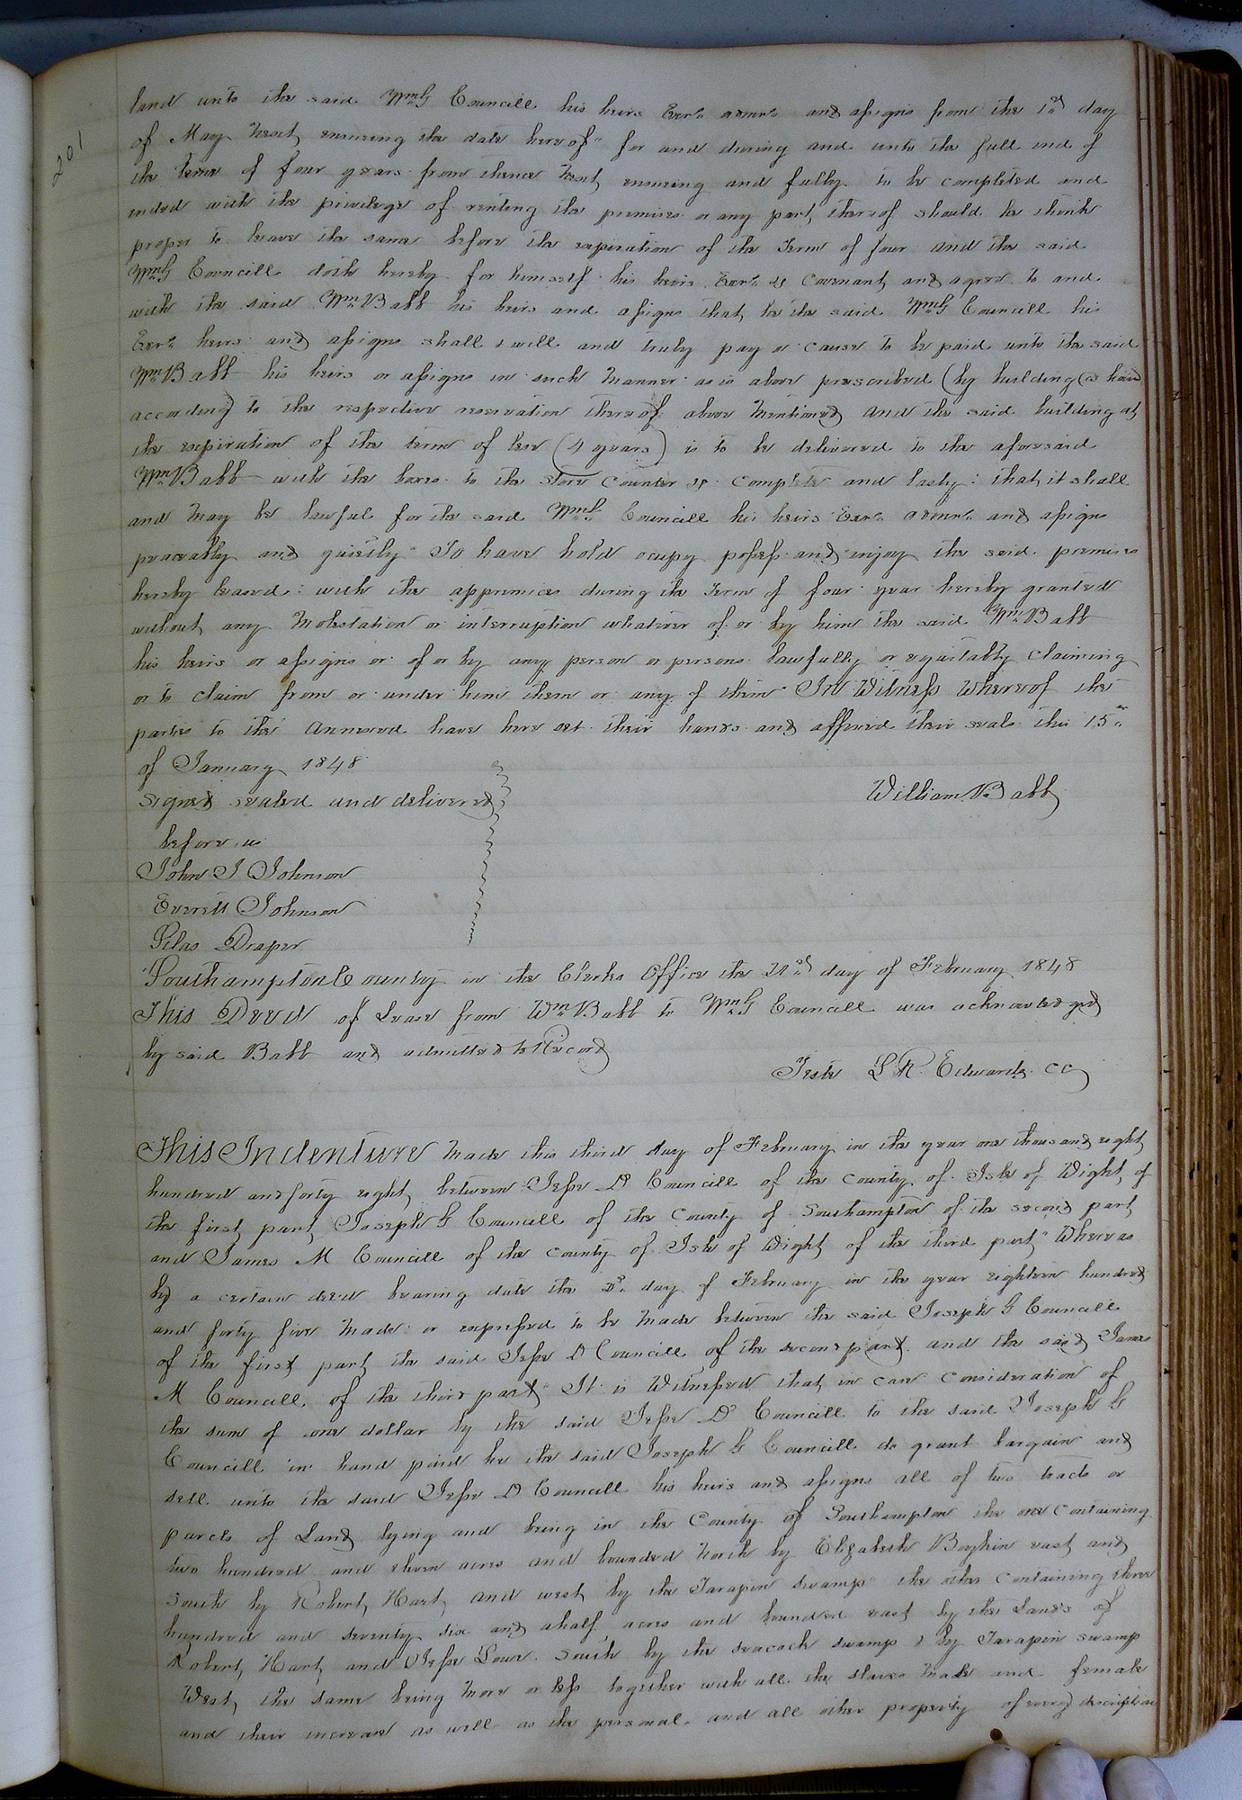 201
land unto the said WmG Councill his heirs Exrs admrs and assigns from the 1st day
of May Next ensuing the date hereof for and during and unto the full end of
the term of four years from thence Next ensuing and fully to be completed and
ended with the privilege of renting the premises or any part thereof should he think
proper to leave the same before the expiration of the Term of four and the said
WmG Councill doth hereby for himself his heirs Exrs &c Covenant and agree to and
with the said Wm Babb his heirs and assigns that he the said WmG Councill his
Exrs heirs and assigns shall & will and truly pay or cause to be paid unto the said
Wm Babb his heirs or assigns in such Manner as is above prescribed (by building
according to the respective reservation thereof above Mentioned and the said building at
the expiration of the term of (4 years) is to be delivered to the aforesaid
Wm Babb with the boxes to the Store Counter &c complete and lasty: that it shall
and May be lawful for the said WmG Councill his heirs Exrs admrs and assigns
peaceably and quietly To have hold ocupy possess and enjoy the said premises
hereby leased: with the apprenices during the Term of four year hereby granted
without any Molestation or interruption whatever of or by him the said Wm Babb
his heirs or assigns or of or by any person or persons lawfully or equitably claiming
or to claim from or under him them or any of them In Witness Whereof the
parties to the Annexed have here set their hands and affixed their seals this 15th
of January 1848
signed sealed and delivered
before us
John J Johnson
Everett Johnson
Silas Draper
William Babb
Southampton County in the Clerks Office the 21st day of February 1848
This Deed of Lease from Wm Babb to WmG Councill was acknowledged
by said Babb and admitted to Record
Teste L R Edwards CC
This Indenture Made this third day of February in the year one thousand eight
hundred and forty eight between Jesse D Councill of the County of Isle of Wight of
the first part Joseph G Councill of the County of Southampton of the second part
and James M Councill of the county of Isle of Wight of the third part Whereas
by a certain deed bearing date the day of February in the year eighteen hundred
and forty five Made or expressed to be Made between the said Joseph G Councill
of the first part the said Jesse D Councill of the second part and the said James
M Councill of the third part It is Witnessed that in consideration of
the sum of one dollar by the said Jesse D Councill to the said Joseph G
Councill in hand paid he the said Joseph G Councill do grant bargain and
sell unto the said Jesse D Councill his heirs and assigns all of two tracts or
parcls of Land lying and being in the County of Southampton the one Containing
two hundred and eleven acres and bounded North by Elizabeth Boykin east and
South by Robert Hart and west by the Tarapin swamp the other containing three
hundred and seventy six and a half acres and bounded east by the Lands of
Robert Hart and Jesse Lowe South by the seacock swamp & by Tarapin swamp
West, the same being More or less together with all the slaves Male and female
and their increase as well as the personal and all other property of every description